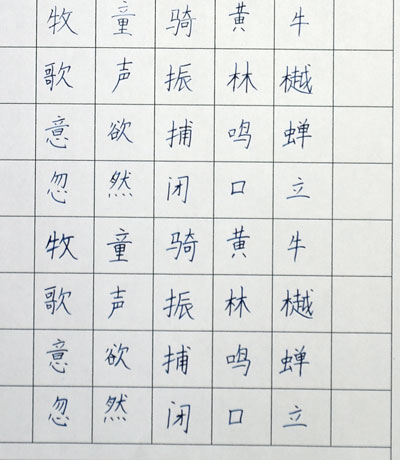 牧童骑黄牛
歌声振林樾
意欲捕鸣蝉
忽然闭口立
牧童骑黄牛
歌声振林樾
意欲捕鸣蝉
忽然闭口立